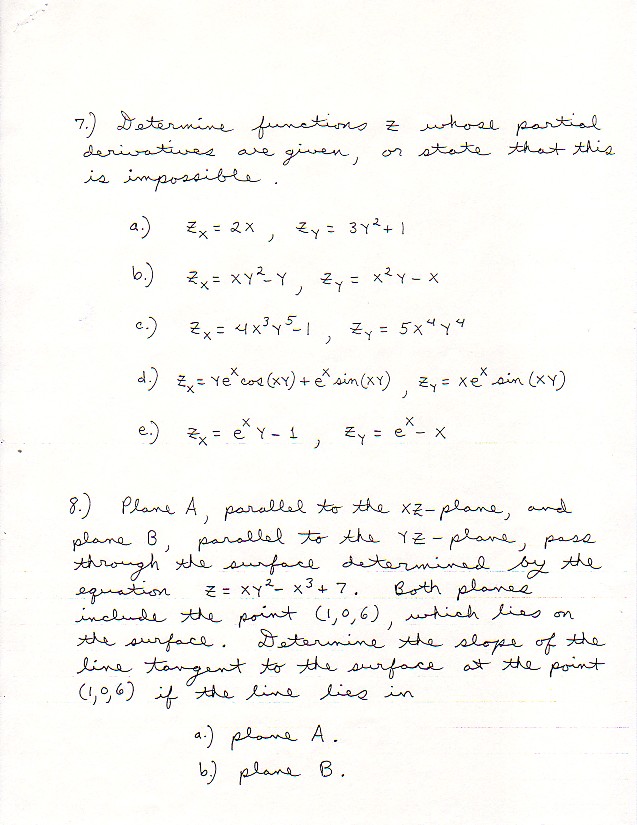 7.) Determine functions z whose partial
derivatives are given, or state that this
is impossible.
a.) z_x = 2x , z_y = 3y² + 1
b.) z_x = xy² - y , z_y = x²y - x
c.) z_x = 4x³y⁵ - 1 , z_y = 5x⁴y⁴
d.) z_x = ye^x cos(xy) + e^x sin(xy) , z_y = xe^x sin(xy)
e.) z_x = e^x y - 1 , z_y = e^x - x
8.) Plane A, parallel to the xz-plane, and
plane B, parallel to the yz-plane, pass
through the surface determined by the
equation z = xy² - x³ + 7. Both planes
include the point (1,0,6), which lies on
the surface. Determine the slope of the
line tangent to the surface at the point
(1,0,6) if the line lies in
a.) plane A.
b.) plane B.